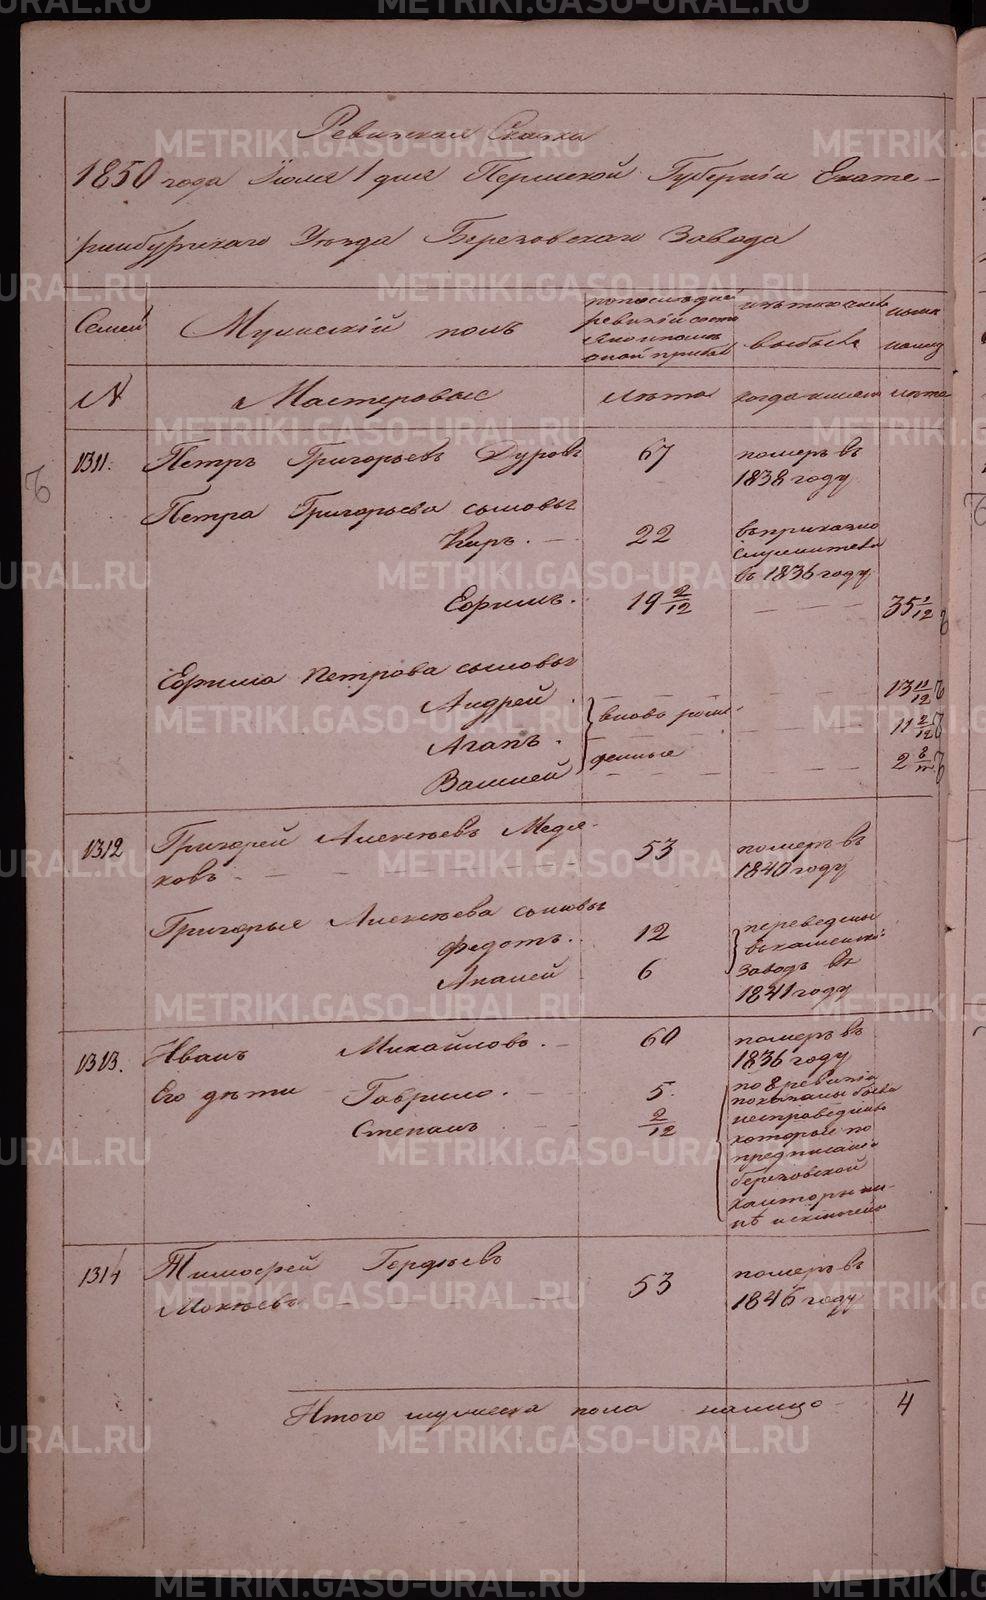 Ревизская Сказка
1850 года Июля 1 дня Пермской Губернiи Екате-
ринбургскаго Уѣзда Березовскаго Завода
Семей
Мужескiй полъ
по последней
ревизiи состо
яло и послѣ
оной прибы
изъ того числа
выбыло
нынѣ
налицо
№
Мастеровые
лѣта
когда именно
лѣта
1311.
Петръ Григорьевъ Дуровъ
67
померъ въ
1838 году
Петра Григорьева сыновья
Киръ.
22
въ
служители
въ 1836 году
Ефимъ.
19 2/12
35 2/12
Ефима Петрова сыновья
Андрей
13 11/12
Агапъ.
вновь рож-
11 2/12
Василей
денные
2 8/м
1312
Григорей Алексѣевъ
ковъ
53
померъ въ
1840 году
Григорья Алексѣева сыновья
Федотъ.
12
переведены
въ каменской
Ананей
6
заводъ въ
1841 году
1313.
Иванъ Михайловъ.
60
померъ въ
1836 году
Его дѣти Гаврило.
5.
Степанъ
2/12
по 8 ревизiи
показаны были
несправедливо
которые по
предписанiю
березовской
конторы
1314
Тимофей Гордѣевъ
Мокѣевъ
53
померъ въ
1846 году
Итого мужеска пола налицо
4
METRIKI.GASO-URAL.RU